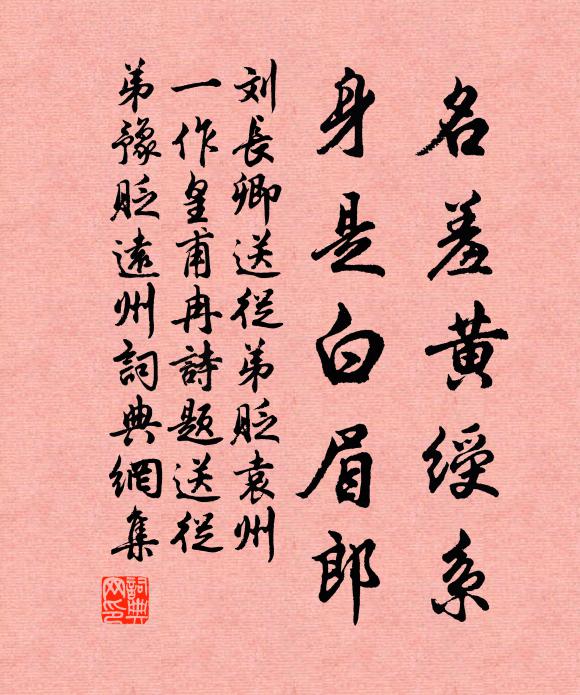 名羞黄綬系
身是白眉郎
刘長卿送從弟貶袁州
一作皇甫冉詩題送從
弟豫貶遠州詞典網集
詞典网印